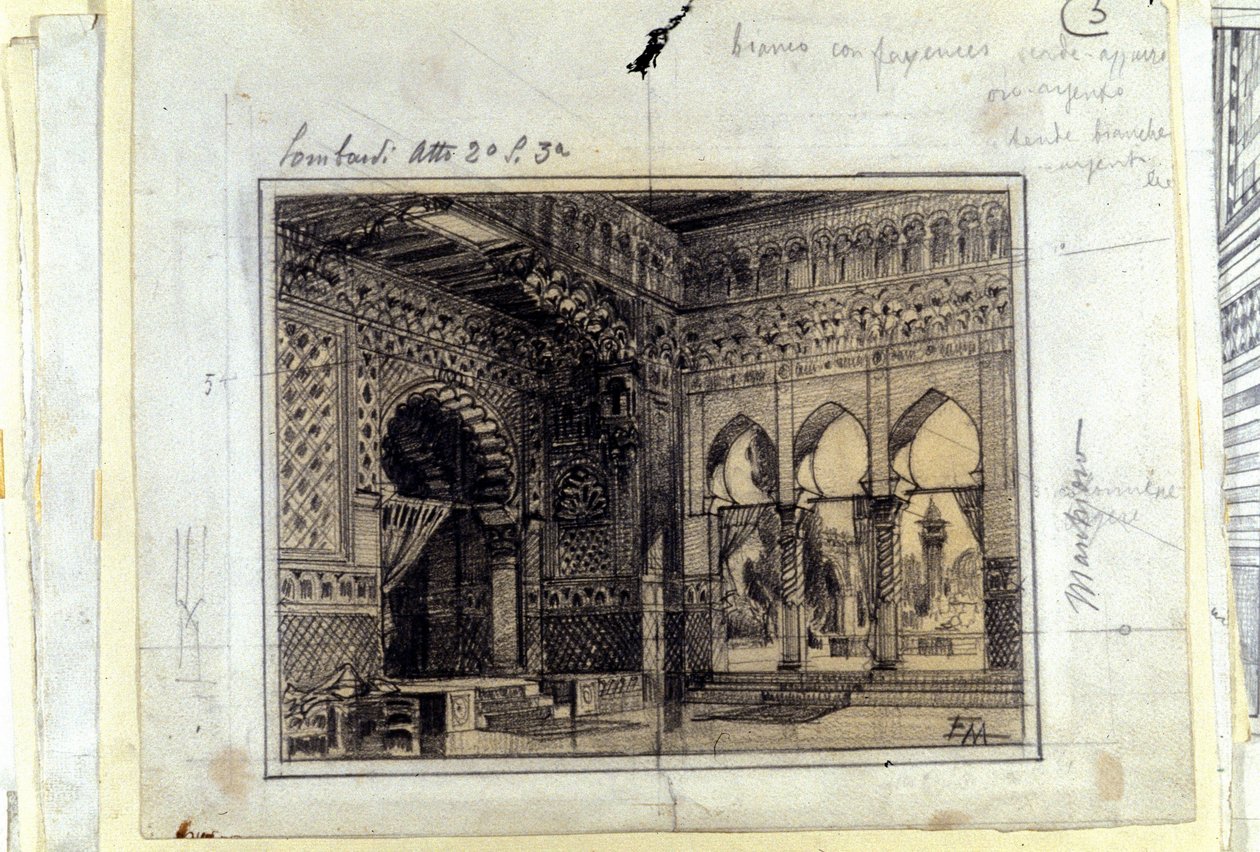 3
bianco con fayences verde-azzurro
oro-argento
tende bianche
argento
Lombardi Atto 2º S. 3ª
5
colonne
FM